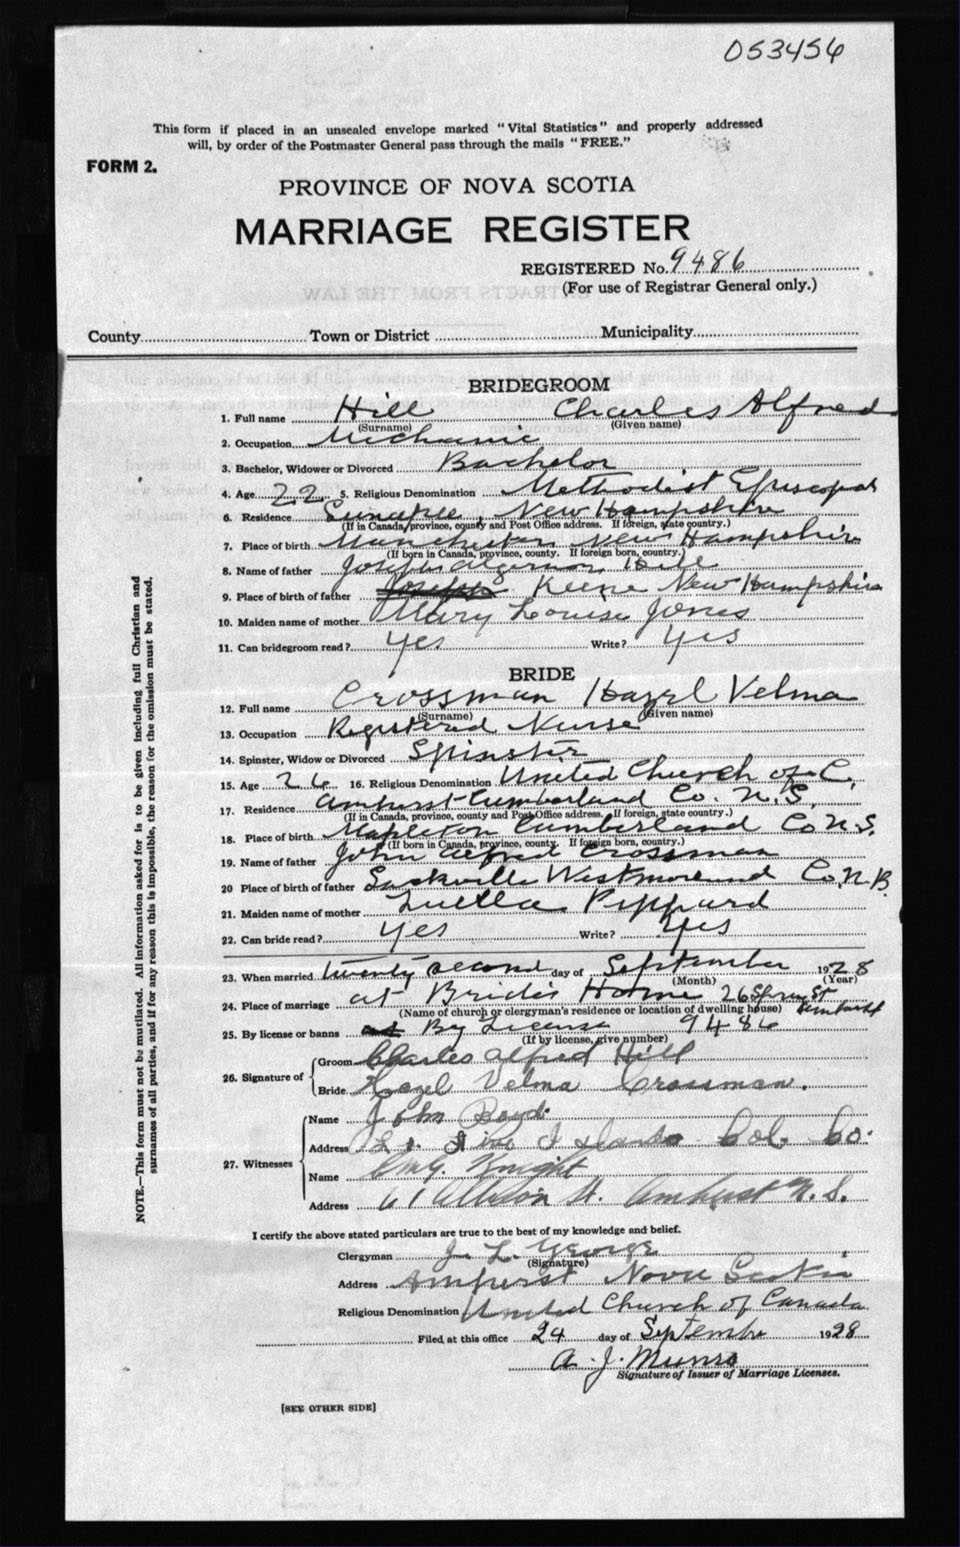 053456
This form if placed in an unsealed envelope marked "Vital Statistics" and properly addressed
will, by order of the Postmaster General pass through the mails "FREE."
FORM 2.
PROVINCE OF NOVA SCOTIA
MARRIAGE REGISTER
REGISTERED No. 9486
(For use of Registrar General only.)
County Town or District Municipality
BRIDEGROOM
1. Full name Hill Charles Alfred
(Surname) (Given name)
2. Occupation Mechanic
3. Bachelor, Widower or Divorced Bachelor
4. Age 22 5. Religious Denomination Methodist Episcopal
6. Residence Sunapee, New Hampshire
(If in Canada, province, county and Post Office address. If foreign, state country.)
7. Place of birth Manchester New Hampshire
(If born in Canada, province, county. If foreign born, country.)
8. Name of father Joseph Algernon Hill
9. Place of birth of father Keene New Hampshire
10. Maiden name of mother Mary Louise Jones
11. Can bridegroom read? Yes Write? Yes
BRIDE
12. Full name Crossman Hazel Velma
(Surname) (Given name)
13. Occupation Registered Nurse
14. Spinster, Widow or Divorced Spinster
15. Age 26 16. Religious Denomination United Church of C.
17. Residence Amherst Cumberland Co. N.S.
(If in Canada, province, county and Post Office address. If foreign, state country.)
18. Place of birth Mapleton Cumberland Co N.S.
(If born in Canada, province, county. If foreign born, country.)
19. Name of father John Alfred Crossman
20 Place of birth of father Sackville Westmoreland Co. N.B.
21. Maiden name of mother Luella Pippard
22. Can bride read? Yes Write? Yes
23. When married twenty second day of September 1928
(Month) (Year)
24. Place of marriage at Bride's Home 26 Spring St Amherst
(Name of church or clergyman's residence or location of dwelling house)
25. By license or banns By License 9486
(If by license, give number)
26. Signature of Groom Charles Alfred Hill
Bride Hazel Velma Crossman.
27. Witnesses Name John Boyd
Address Islands Col. Co.
Name Knight
Address 61 Albion St. Amherst N.S.
NOTE.—This form must not be mutilated. All information asked for is to be given including full Christian and
surnames of all parties, and if for any reason this is impossible, the reason for the omission must be stated.
I certify the above stated particulars are true to the best of my knowledge and belief.
Clergyman J. L. George
(Signature)
Address Amherst Nova Scotia
Religious Denomination United Church of Canada
Filed at this office 24 day of September 1928
A. J. Munro
Signature of Issuer of Marriage Licenses.
[SEE OTHER SIDE]